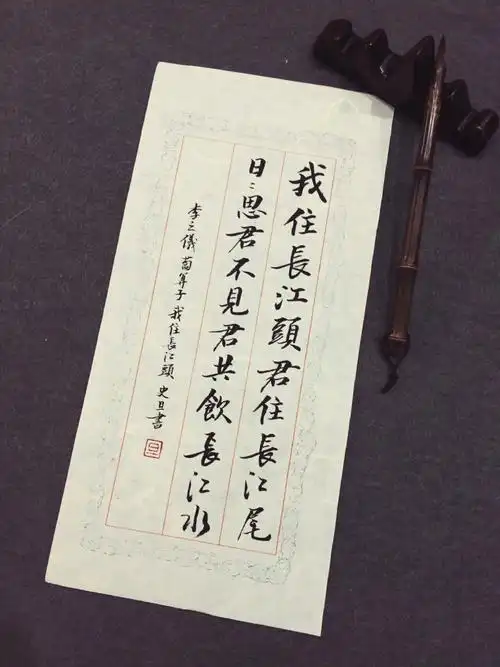 我住長江頭君住長江尾
日〻思君不見君共飲長江水
李之儀蔔算子我住長江頭 史旦書
旦